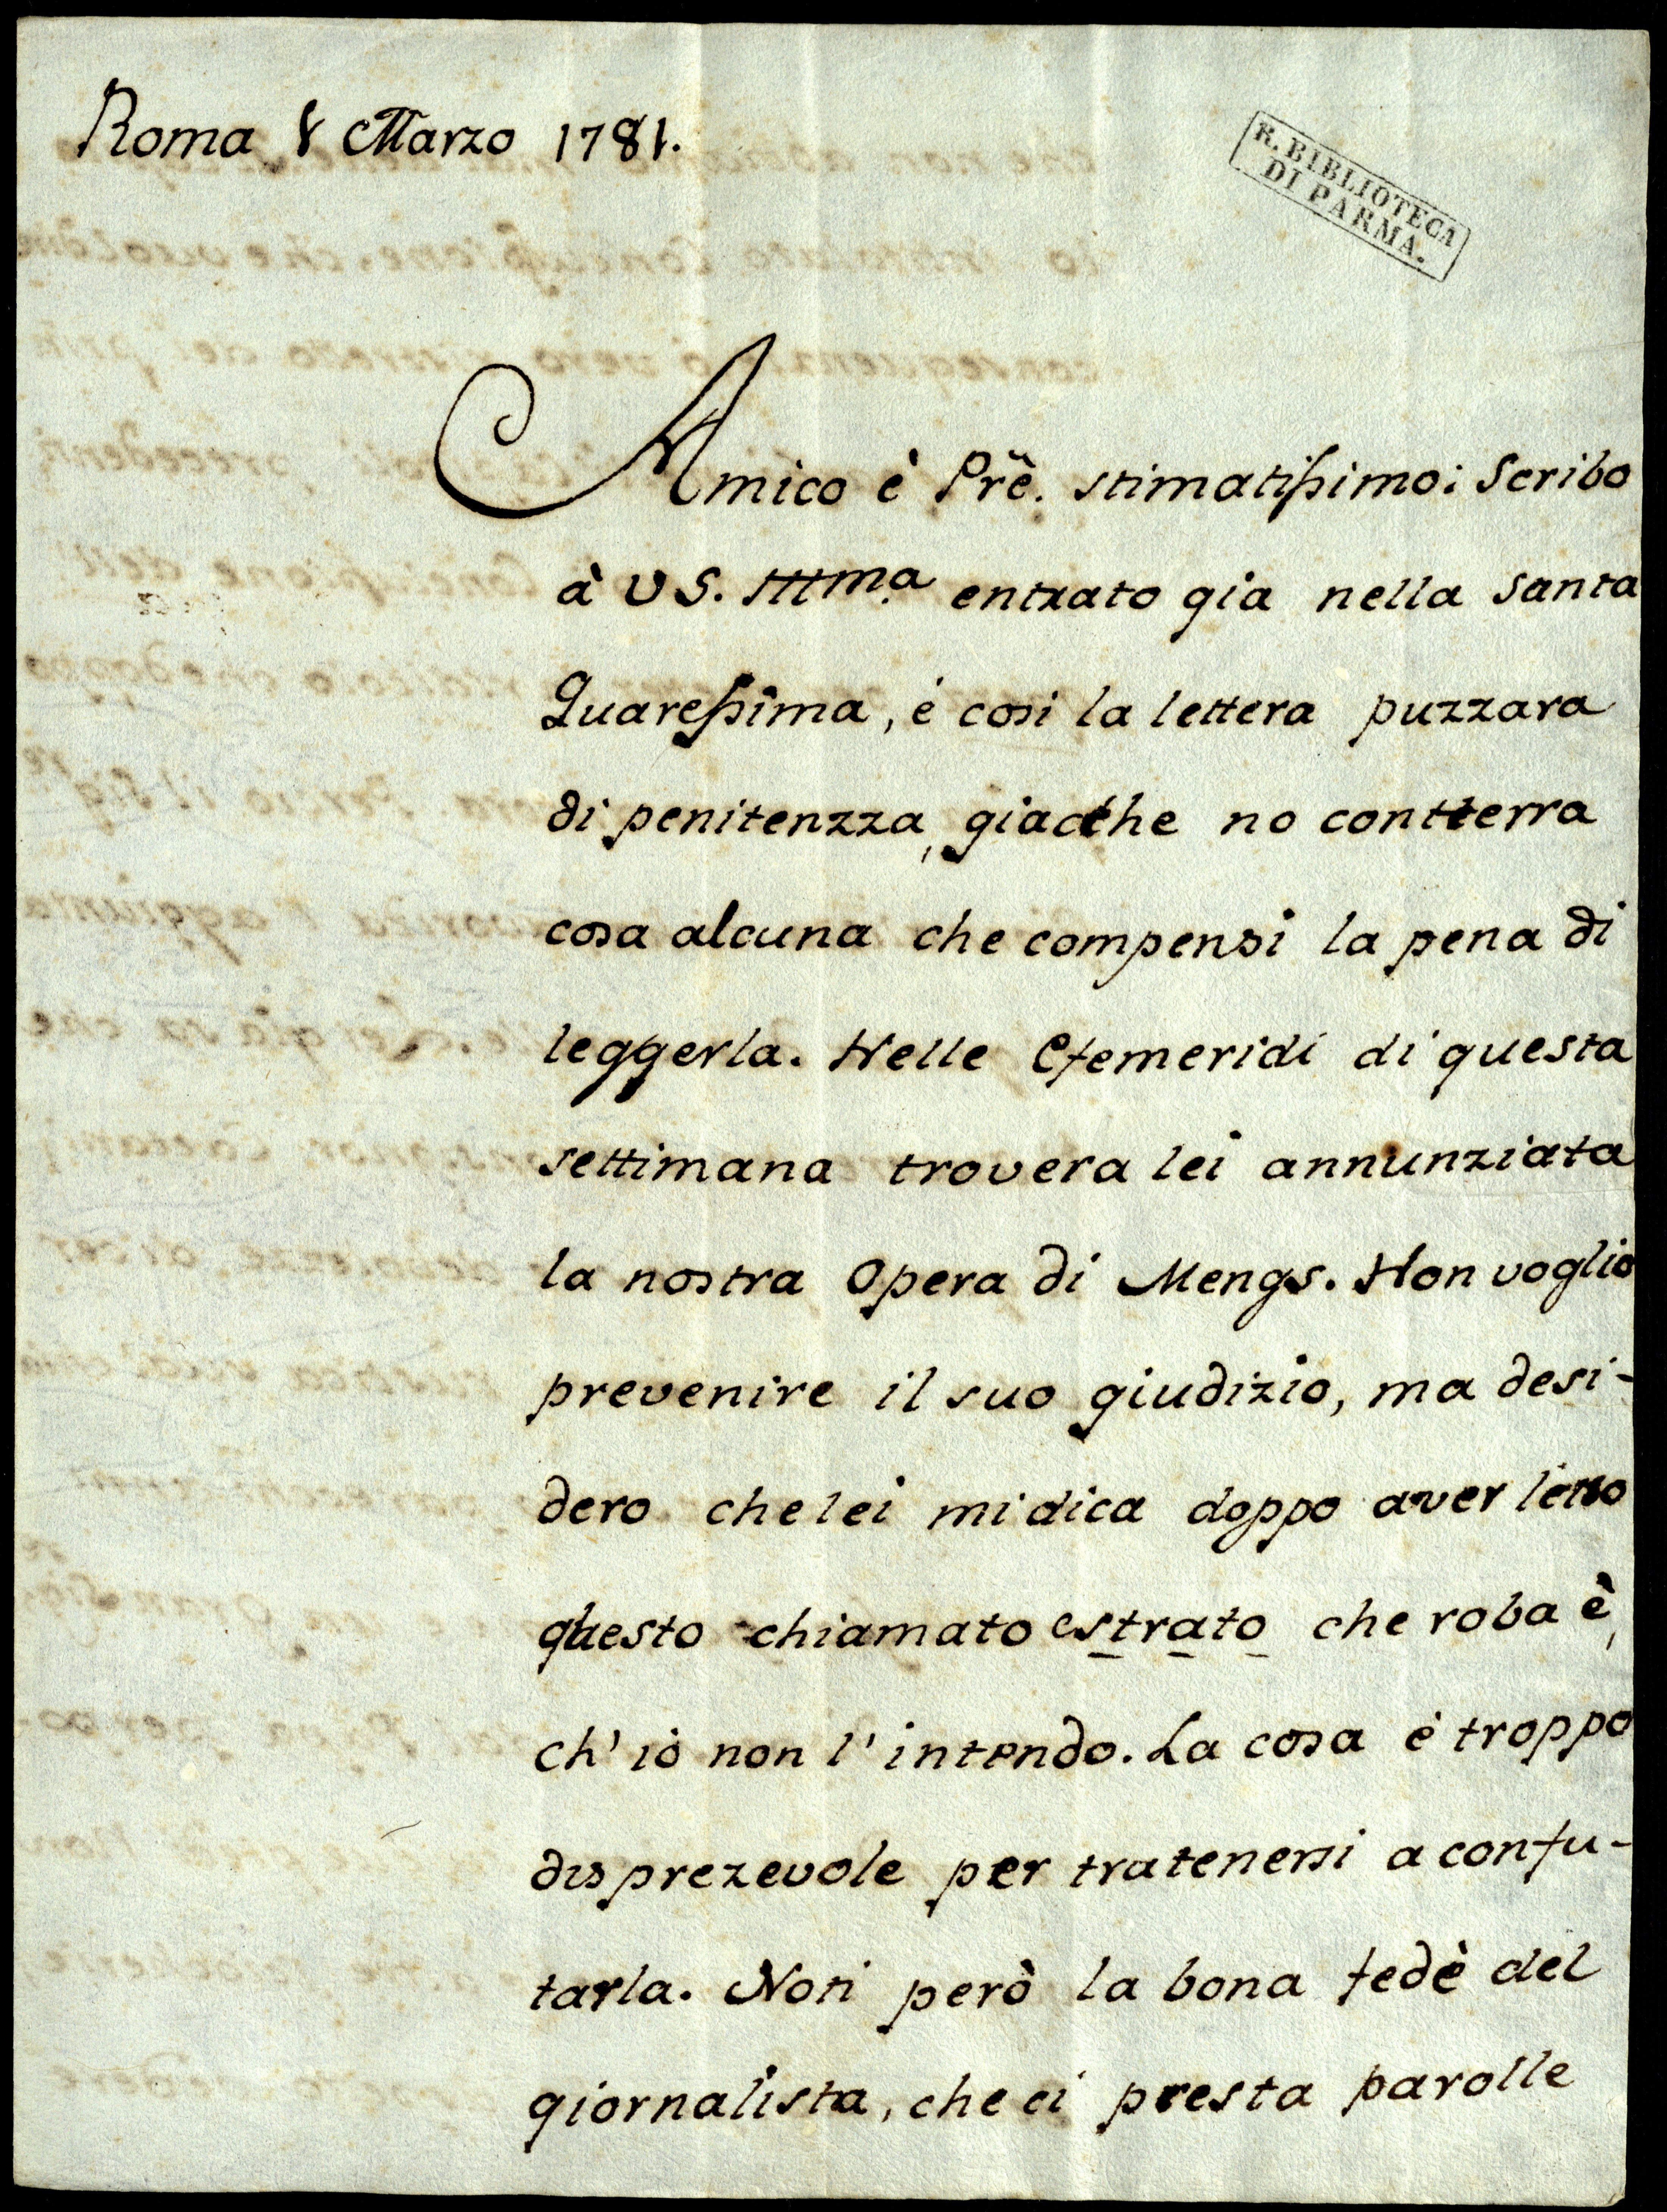 Roma 8 Marzo 1781.
R. BIBLIOTECA
DI PARMA.
Amico è Prẽ. stimatissimo: Scribo
à VS. Illma entrato gia nella santa
Quaressima, é cosi la lettera puzzara
di penitenzza, giacche no contterra
cosa alcuna che compensi la pena di
leggerla. Nelle Efemeridi di questa
settimana trovera lei annunziata
la nostra Opera di Mengs. Non voglio
prevenire il suo giudizio, ma desi-
dero che lei mi dica doppo aver letto
questo chiamato estrato che roba è,
ch'io non l'intendo. La cosa é troppo
disprezevole per tratenersi a confu-
tarla. Noti però la bona fedè del
giornalista, che ci presta parolle